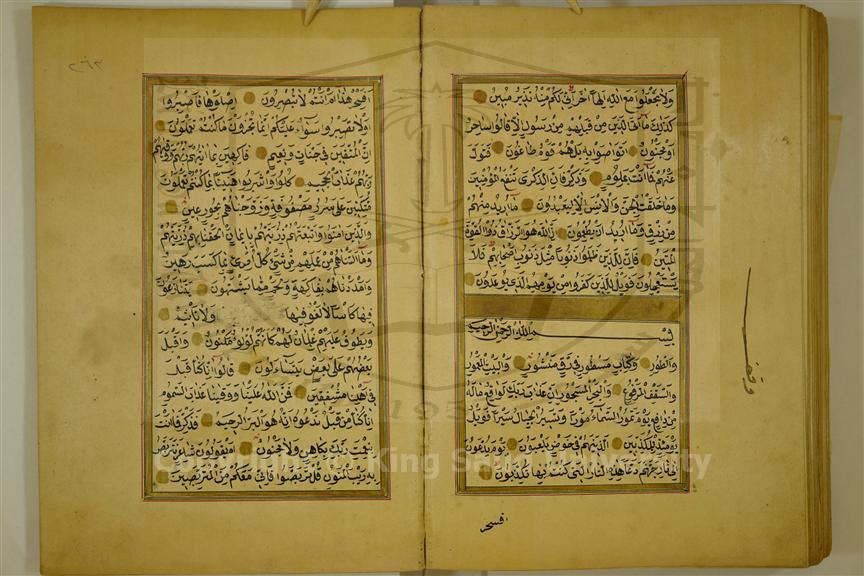 ولا تجعلوا مع الله إلها آخر إني لكم منه نذير مبين
كذلك ما أتى الذين من قبلهم من رسول إلا قالوا ساحر
أو مجنون أتواصوا به بل هم قوم طاغون فتول
عنهم فما أنت بملوم وذكر فإن الذكرى تنفع المؤمنين
وما خلقت الجن والإنس إلا ليعبدون ما أريد منهم
من رزق وما أريد أن يطعمون إن الله هو الرزاق ذو القوة
المتين فإن للذين ظلموا ذنوبا مثل ذنوب أصحابهم فلا
يستعجلون فويل للذين كفروا من يومهم الذي يوعدون
بسم الله الرحمن الرحيم
والطور وكتاب مسطور في رق منشور والبيت المعمور
والسقف المرفوع والبحر المسجور إن عذاب ربك لواقع ماله
من دافع يوم تمور السماء مورا وتسير الجبال سيرا فويل
يومئذ للمكذبين الذين هم في خوض يلعبون يوم يدعون
إلى نار جهنم دعا هذه النار التي كنتم بها تكذبون
افسحر
وقف
٢٦٣
أفسحر هذا أم أنتم لا تبصرون اصلوها فاصبروا
أو لا تصبروا سواء عليكم إنما تجزون ما كنتم تعملون
إن المتقين في جنات ونعيم فاكهين بما آتاهم ربهم ووقاهم
ربهم عذاب الجحيم كلوا واشربوا هنيئا بما كنتم تعملون
متكئين على سرر مصفوفة وزوجناهم بحور عين
والذين آمنوا واتبعتهم ذريتهم بإيمان ألحقنا بهم ذريتهم
وما ألتناهم من عملهم من شيء كل امرئ بما كسب رهين
وأمددناهم بفاكهة ولحم مما يشتهون يتنازعون
فيها كأسا لا لغو فيها ولا تأثيم
ويطوف عليهم غلمان لهم كأنهم لؤلؤ مكنون وأقبل
بعضهم على بعض يتساءلون قالوا إنا كنا قبل
في أهلنا مشفقين فمن الله علينا ووقانا عذاب السموم
إنا كنا من قبل ندعوه إنه هو البر الرحيم فذكر فما أنت
بنعمت ربك بكاهن ولا مجنون أم يقولون شاعر نتربص
به ريب المنون قل تربصوا فإني معكم من المتربصين
King Saud University